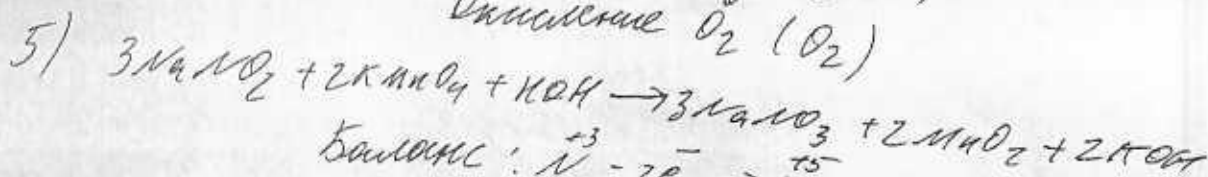 Окисление O₂ (O₂)
5) 3NaNO₂ + 2KMnO₄ + HOH → 3NaNO₃ + 2MnO₂ + 2KOH
Баланс: N⁺³ - 2e⁻ → ⁺⁵